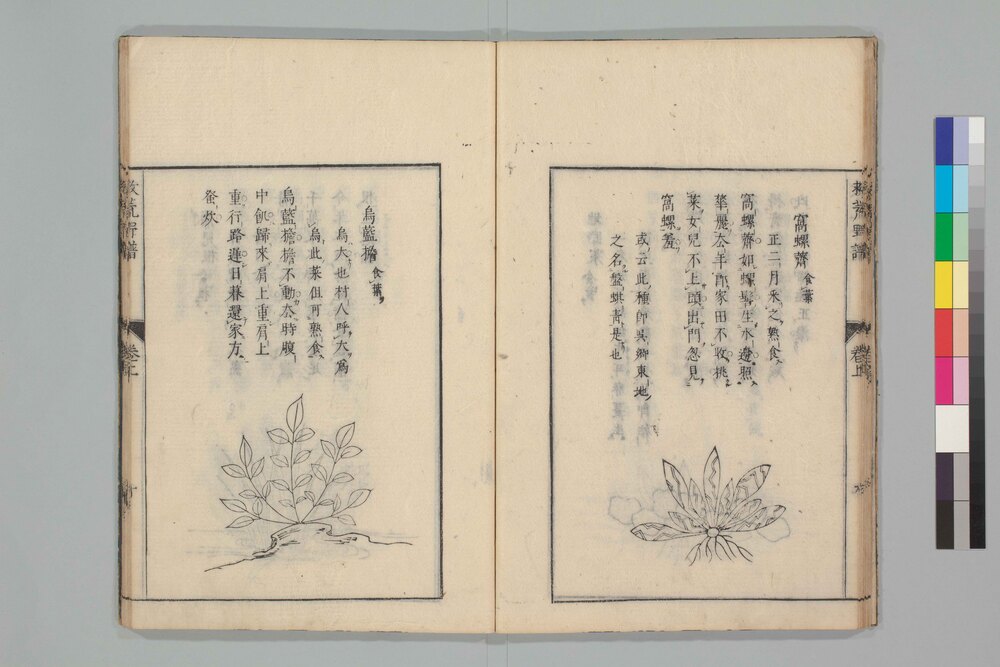 救荒野譜
卷上
窩螺薺 食葉
正二月采之熟食
窩螺薺如螺髻生水邊照
華麗去年郎家田不收挑
菜女兒不上頭出門忽見
窩螺羞
或云此種即吳鄉東地
之名盤蜞青是也
烏藍擔 食葉
烏大也村人呼大爲
烏此菜但可熟食
烏藍擔擔不動去時腹
中飢歸來肩上重肩上
重行路遲日暮還家方
蚤炊
救荒野譜
卷上